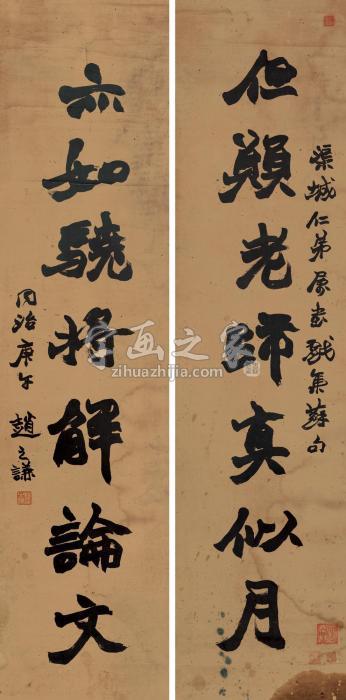 渠城仁弟屬書戲集蘇句
但願老師真似月
亦如驍將解論文
同治庚午 趙之謙
画之家
zihuazhijia.com